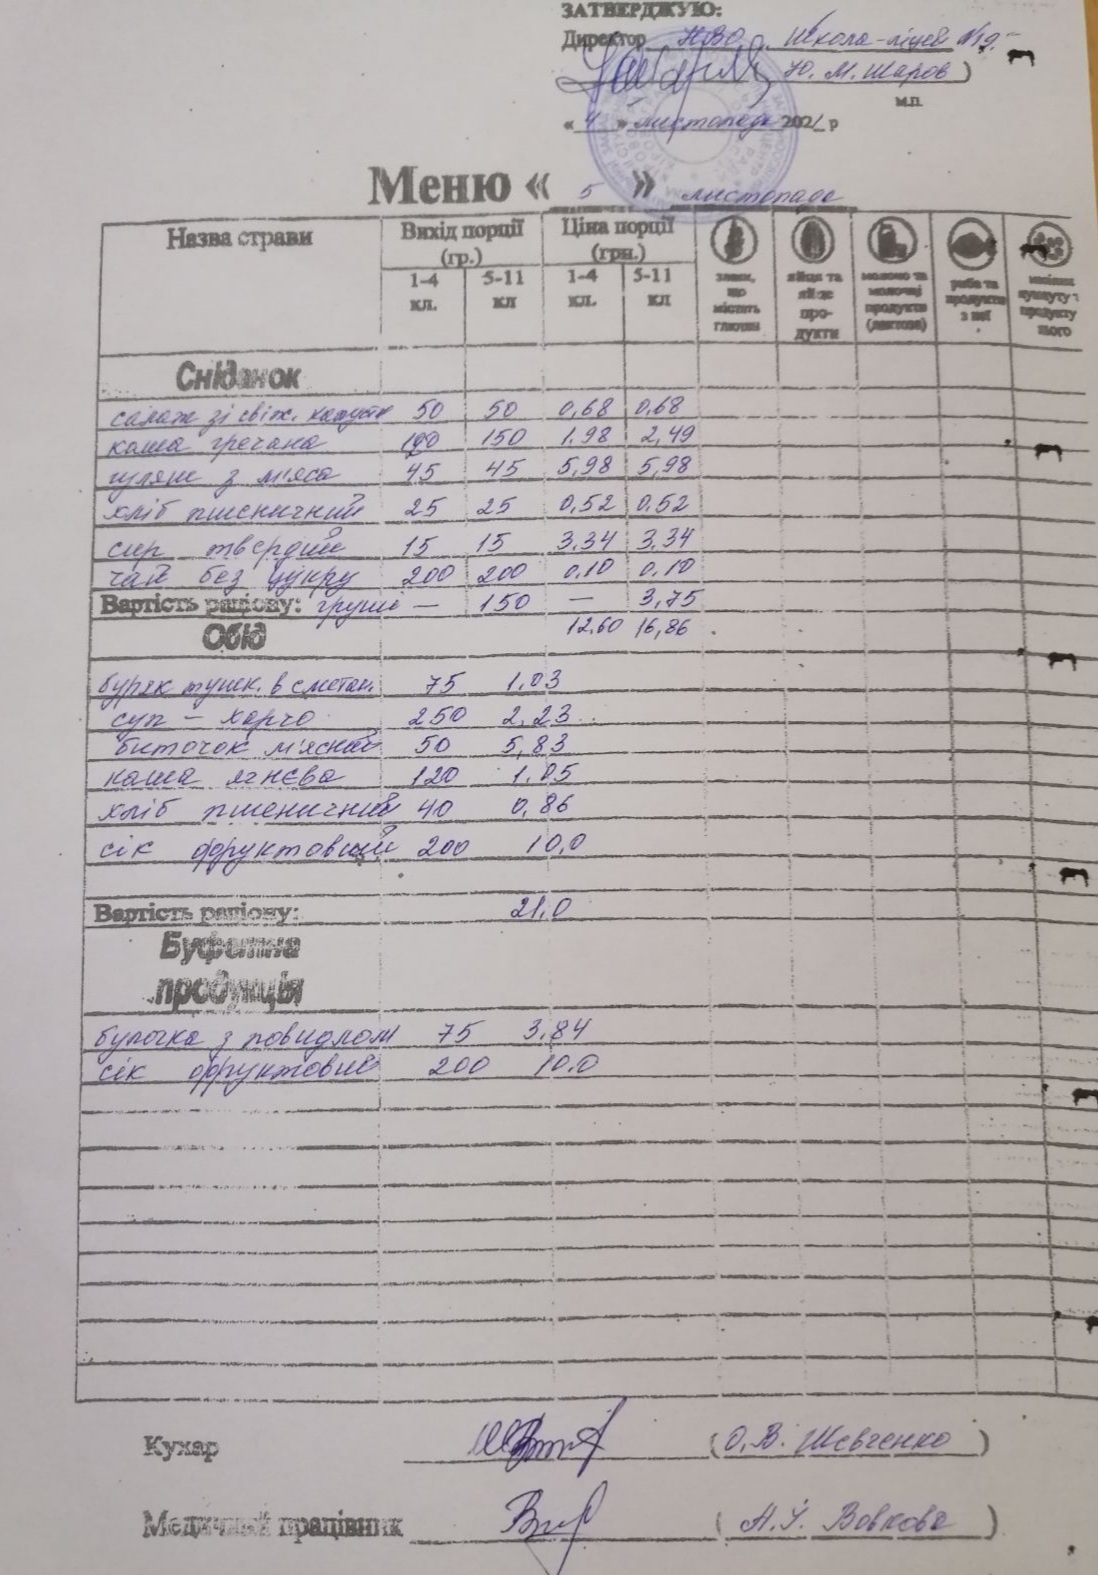 ЗАТВЕРДЖУЮ:
Директор НВО Школа-ліцей №19
Ю. М. Шаров)
м.п.
« 4 » листопада 2021 р
Меню « 5 » листопада
Назва страви Вихід порції (гр.) Ціна порції (грн.)
1-4 кл. 5-11 кл 1-4 кл. 5-11 кл
злаки, що містять глютен
яйця та яйце продукти
молоко та молочні продукти (лактоза)
риба та продукти з неї
Сніданок
салат зі свіж. капусти 50 50 0,68 0,68
каша гречана 100 150 1.98 2,49
гуляш з м'яса 45 45 5,98 5,98
хліб пшеничний 25 25 0,52 0,52
сир твердий 15 15 3,34 3,34
чай без цукру 200 200 0,10 0,10
Вартість раціону: груші — 150 — 3,75
Обід 12.60 16,86
буряк тушк. в сметан. 75 1.03
суп - харчо 250 2,23
биточок м'ясний 50 5,83
каша ячнєва 120 1.05
хліб пшеничний 40 0,86
сік фруктовий 200 10,0
Вартість раціону: 21,0
Буфетна
продукція
булочка з повидлом 75 3,84
сік фруктовий 200 10.0
Кухар (О. В. Шевченко)
Медичний працівник (А. У. Вовкова)